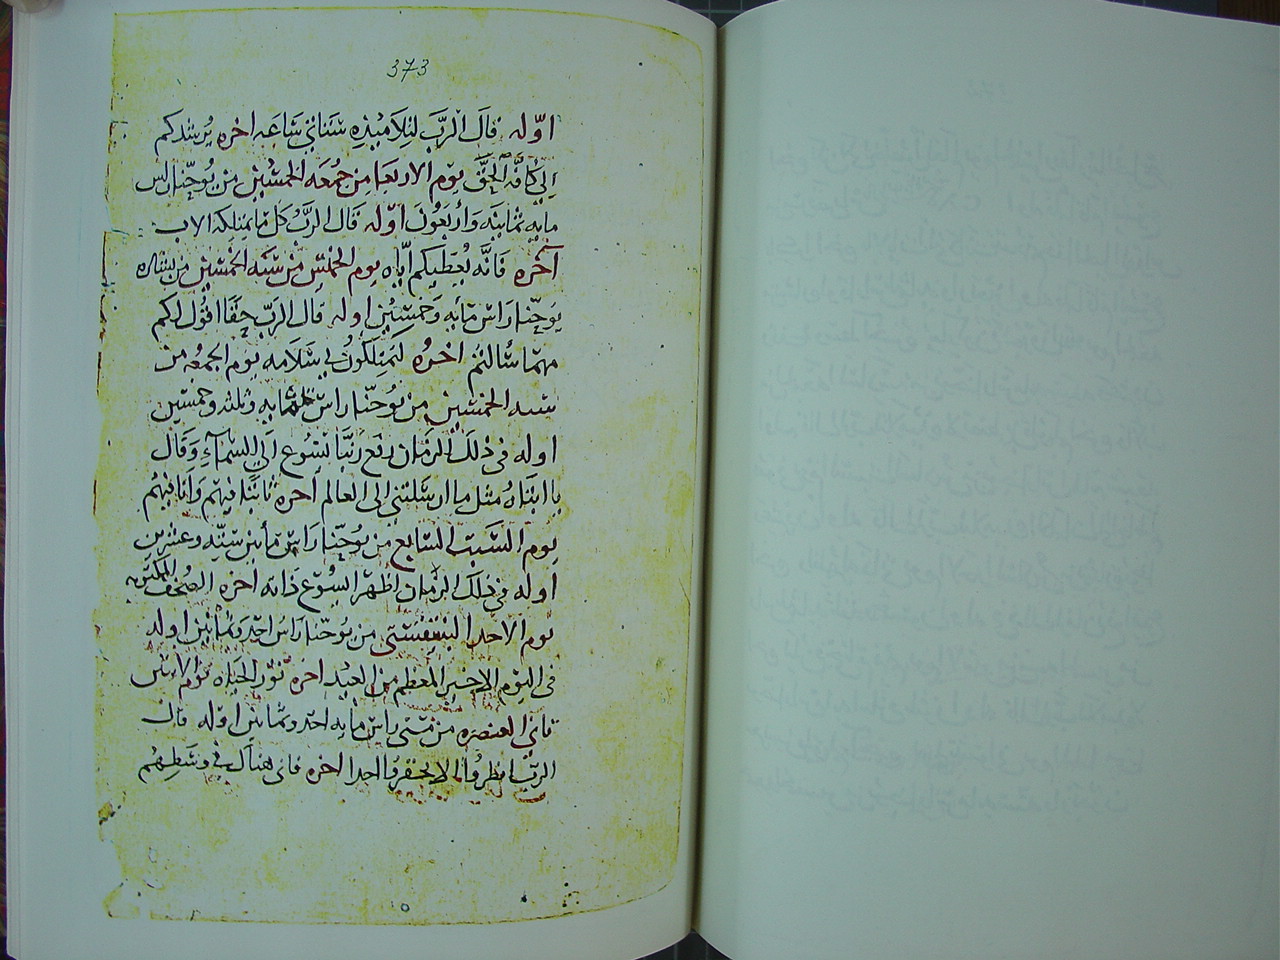 373
اوّله قال الربّ لتلاميذه ستاتي ساعه اخره يرشدكم
الي كافّه الحقّ يوم الاربعا من جمعه الخمسين من يوحنّا راس
مايه ثمانيه وأربعون اوّله قال الربّ كل ما يمتلكه الاب
آخره فانّه يُعطيكم ايّاه يوم الخميس من سبّه الخمسين من بشاره
يوحنّا راس مأيه وخمسين اوله قال الربّ حقّا اقول لكم
مهما سُالتم اخره لتمتلكون بي سلامه يوم الجمعه من
سبه الخمسين من يوحنّا راس مايه وثلثه وخمسين
اوله في ذلك الزمان رفع ربّنا يسوع الي السمآء وقال
يا ابتاهُ مثل ما ارسلتني الى العالم اخره ثابتا فيهم وانا فيهم
يوم السبت السابع من يوحنّا راس مأيتين ستّه وعشرين
اوله في ذلك الزمان اظهر ايسوع ذاته اخره الصُحف المكتوبه
يوم الاحد البنتقستي من يوحنّا راس احد وثمانين اوله
في اليوم الاخير المعظم من العيد اخره نور الحياه يوم الاثنين
ثاني العنصره من متي راس مايه احد وثمانين اوله قال
الربّ انظروا الا يحقروا احدا اخره فاني هناك في وسطهم